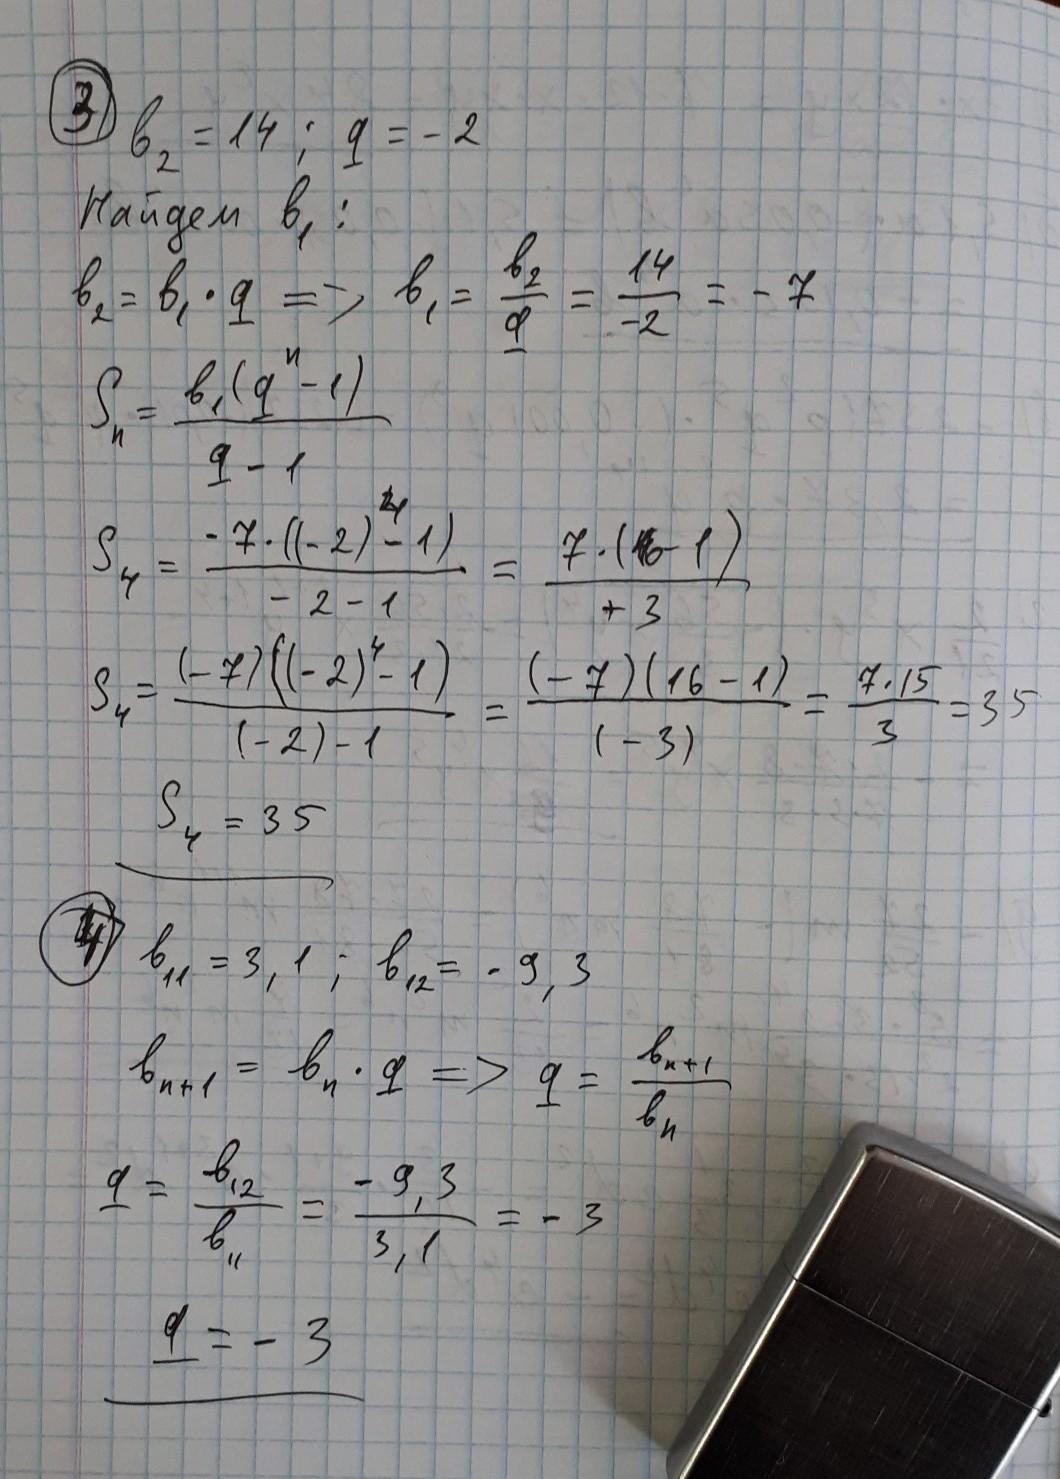 3
b₂ = 14 ; q = - 2
Найдем b₁ :
b₂ = b₁ · q => b₁ = b₂/q = 14/-2 = - 7
Sₙ = b₁(qⁿ - 1)/q - 1
S₄ = - 7 · ((- 2)⁴ - 1)/- 2 - 1 = 7 · (16 - 1)/+ 3
S₄ = (- 7)((- 2)⁴ - 1)/(- 2) - 1 = (- 7)(16 - 1)/(- 3) = 7 · 15/3 = 35
S₄ = 35
4
b₁₁ = 3,1 ; b₁₂ = - 9,3
bₙ₊₁ = bₙ · q => q = bₙ₊₁/bₙ
q = b₁₂/b₁₁ = - 9,3/3,1 = - 3
q = - 3